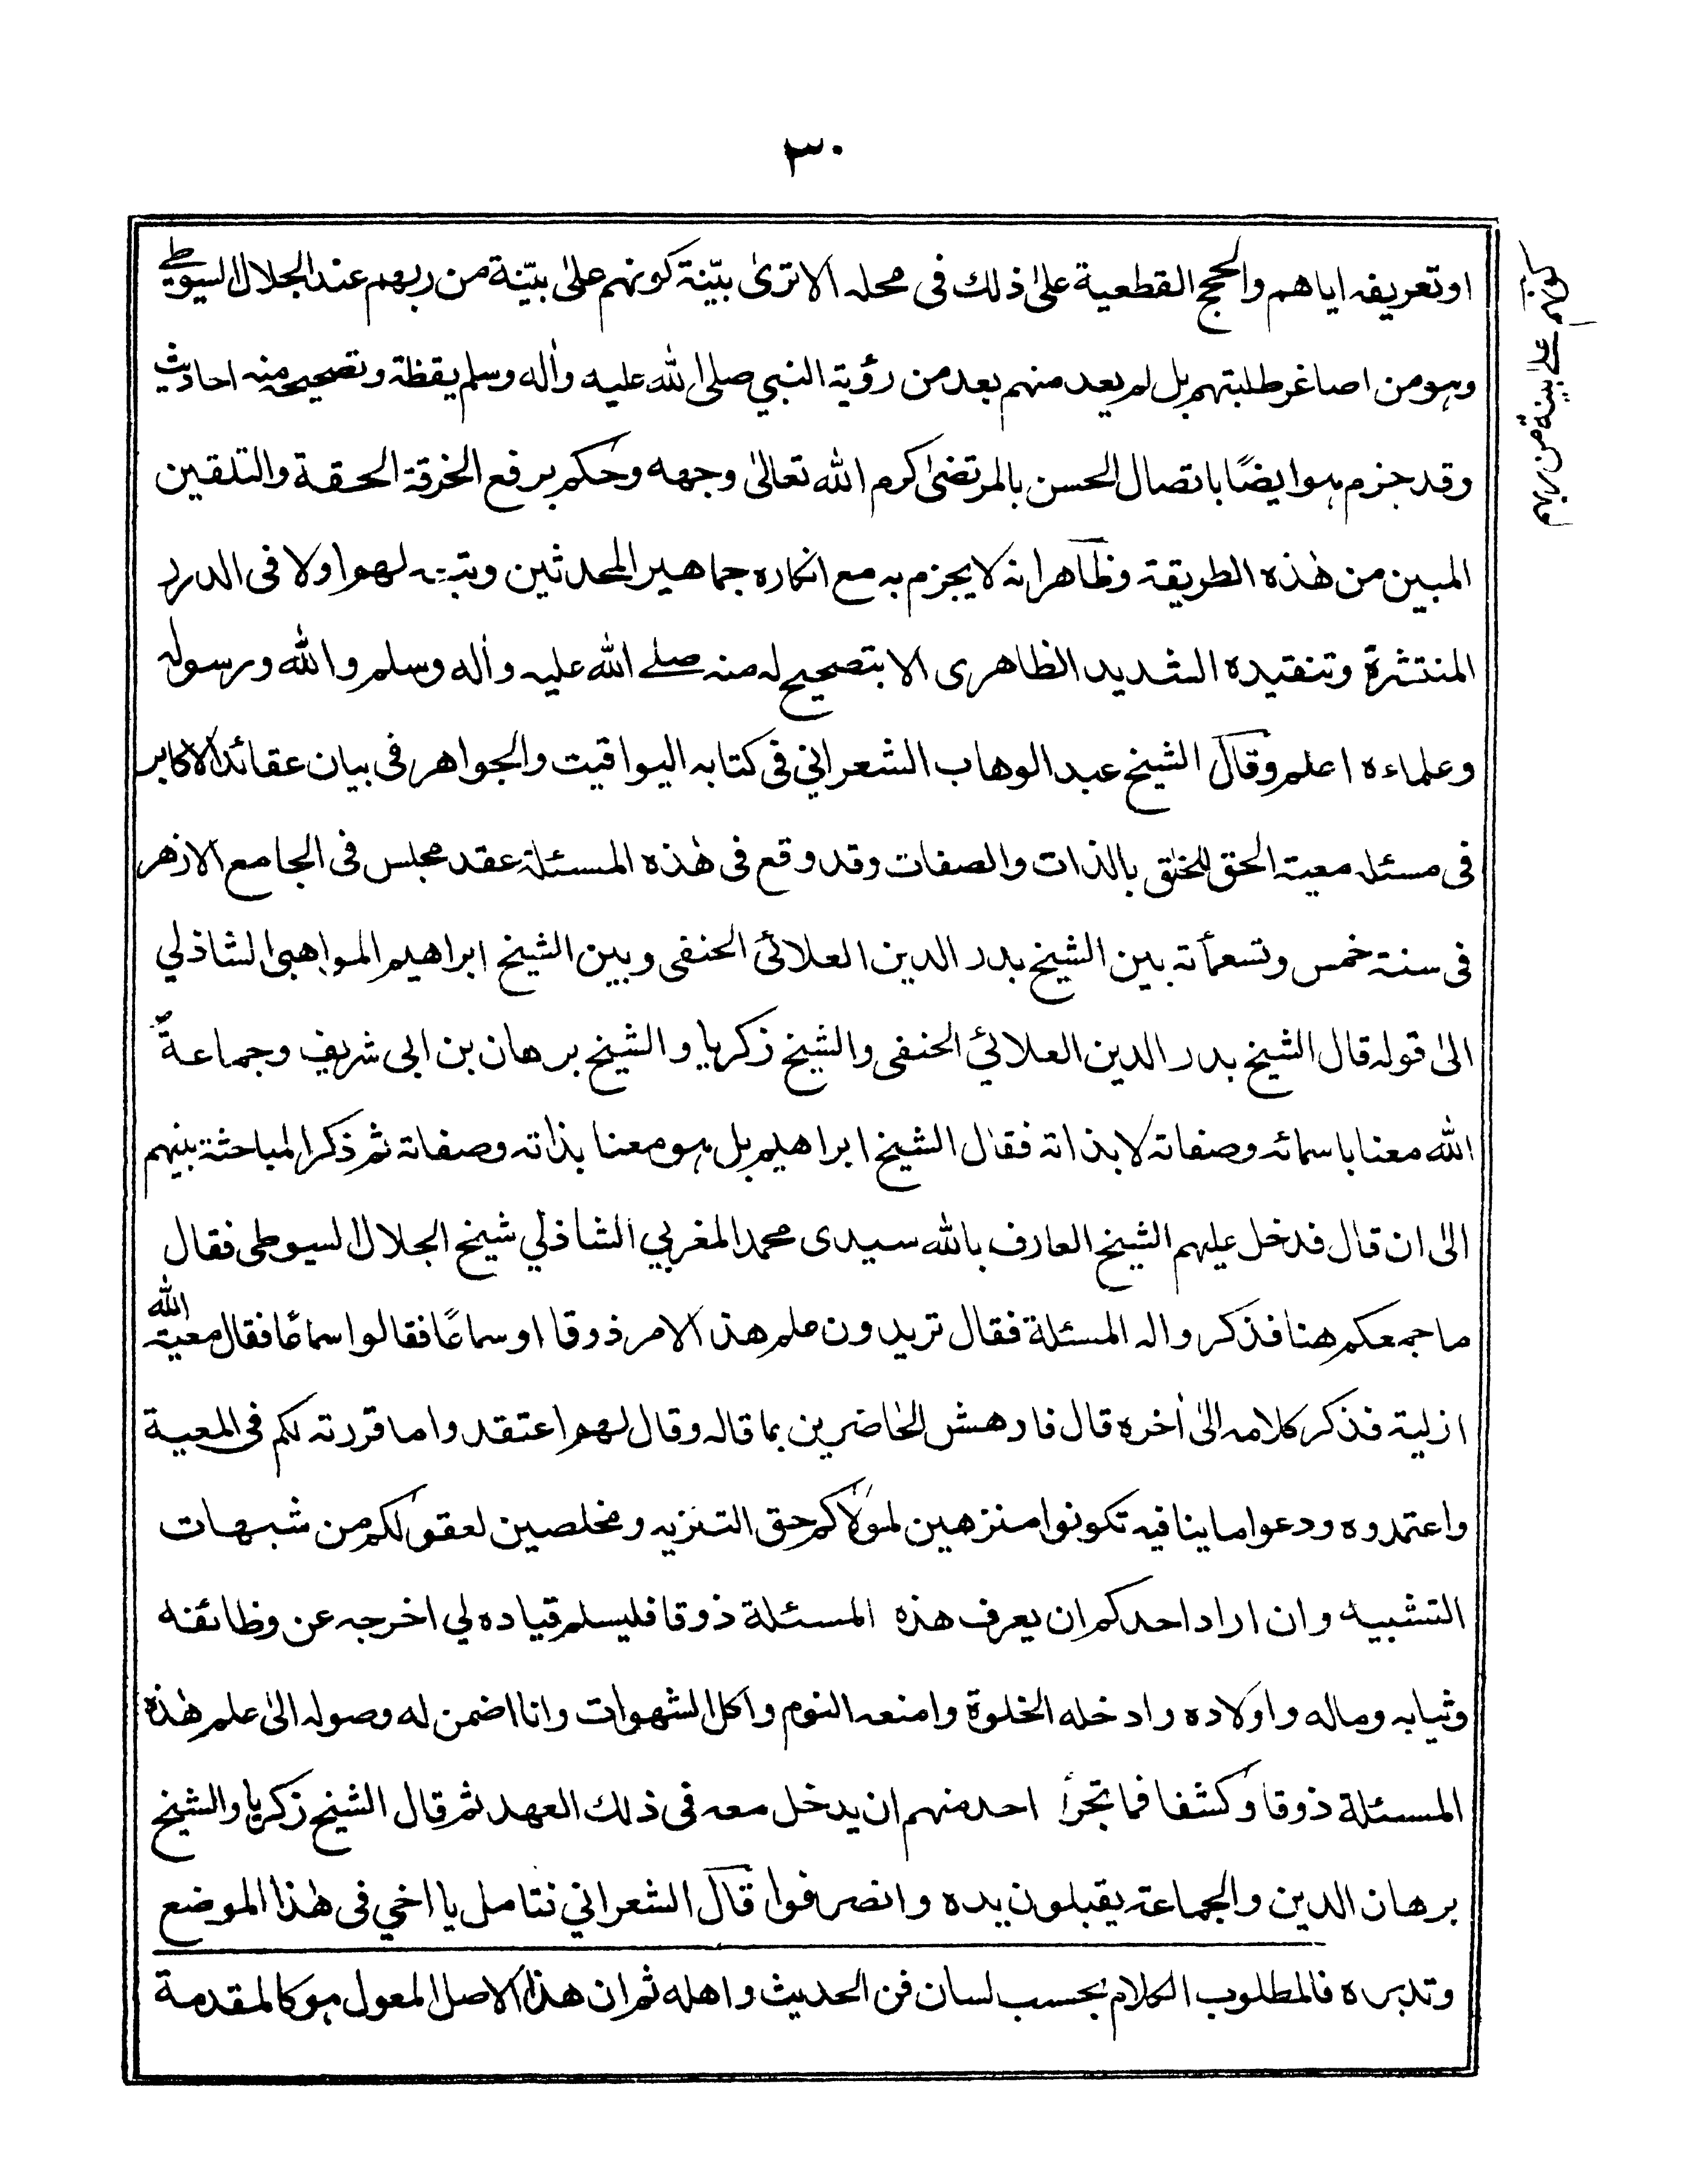 ٣٠
اوتعريفه اياهم والحجج القطعية علىٰ ذلك فى محله الا ترىٰ بيّنة كونهم علىٰ بيّنة من ربهم عند الجلال السيوطى
وهو من اصاغر طلبتهم بل لم يعد منهم بعد من رؤية النبي صلى الله عليه واٰله وسلم يقظة وتصحيحه منه احاديث
وقد جزم هو ايضًا باتصال الحسن بالمرتضىٰ كرم الله تعالىٰ وجهه وحكم برفع الخرقة الحقة والتلقين
المبين من هٰذه الطريقة وظاهر انه لا يجزم به مع انكاره جماهير المحدثين لهم اولا فى الدرر
المنتثرة وتنقيده الشديد الظاهرى الا بتصحيح له منه صلے الله عليه واٰله وسلم والله ورسوله
وعلماءه اعلم وقال الشيخ عبد الوهاب الشعراني فى كتابه اليواقيت والجواهر فى بيان عقائد الاكابر
فى مسئله معية الحق للخلق بالذات والصفات وقد وقع فى هٰذه المسئلة عقد مجلس فى الجامع الازهر
فى سنة خمس وتسعمأتة بين الشيخ بدر الدين العلائى الحنفى وبين الشيخ ابراهيم المواهبى الشاذلي
الىٰ قوله قال الشيخ بدر الدين العلائي الحنفى والشيخ زكريا و الشيخ برهان بن ابى شريف وجماعةٌ
الله معنا باسمائه وصفاته لا بذاته فقال الشيخ ابراهيم بل هو معنا بذاته وصفاته ثم ذكر المباحثة بينهم
الىٰ ان قال فدخل عليهم الشيخ العارف بالله سيدى محمد المغربي الشاذلي شيخ الجلال السيوطى فقال
ما جمعكم هنا فذكروا له المسئلة فقال تريدون علم هذ الامر ذوقا او سماعًا فقالوا سماعًا فقال معية الله
ازلية فذكر كلامه الىٰ اٰخره قال فادهش الحاضرين بما قاله وقال لهم اعتقدوا ما قررته لكم فى المعية
واعتمدوه ودعوا ما ينافيه تكونوا منزهين لمولاكم حق التنزيه ومخلصين لعقولكم من شبهات
التشبيه وان اراد احدكم ان يعرف هذه المسئلة ذوقا فليسلم قياده لي اخرجه عن وظائفه
وثيابه وماله واولاده وادخله الخلوة وامنعه النوم واكل الشهوات وانا اضمن له وصوله الىٰ علم هٰذه
المسئلة ذوقا وكشفا فما تجرأ احد منهم ان يدخل معه فى ذلك العهد ثم قال الشيخ زكريا والشيخ
برهان الدين والجماعة يقبلون يده وانصرفوا قال الشعراني نتامل يا اخي فى هٰذا الموضع
وتدبره فالمطلوب الكلام بحسب لسان فن الحديث واهله ثم ان هذا الاصل المعول هو كالمقدمة
كونهم علے بينة من ربهم